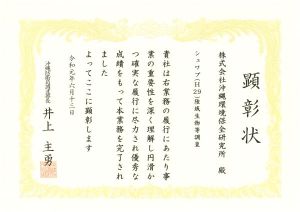 顕彰状
株式会社沖縄環境保全研究所 殿
シュワブ(H29)陸域生物等調査
貴社は右業務の履行にあたり事
業の重要性を深く理解し円滑か
つ確実な履行に尽力され優秀な
成績をもって本業務を完了され
ました
よってここに顕彰します
令和元年六月十三日
沖縄防衛局調達部長
井上主勇